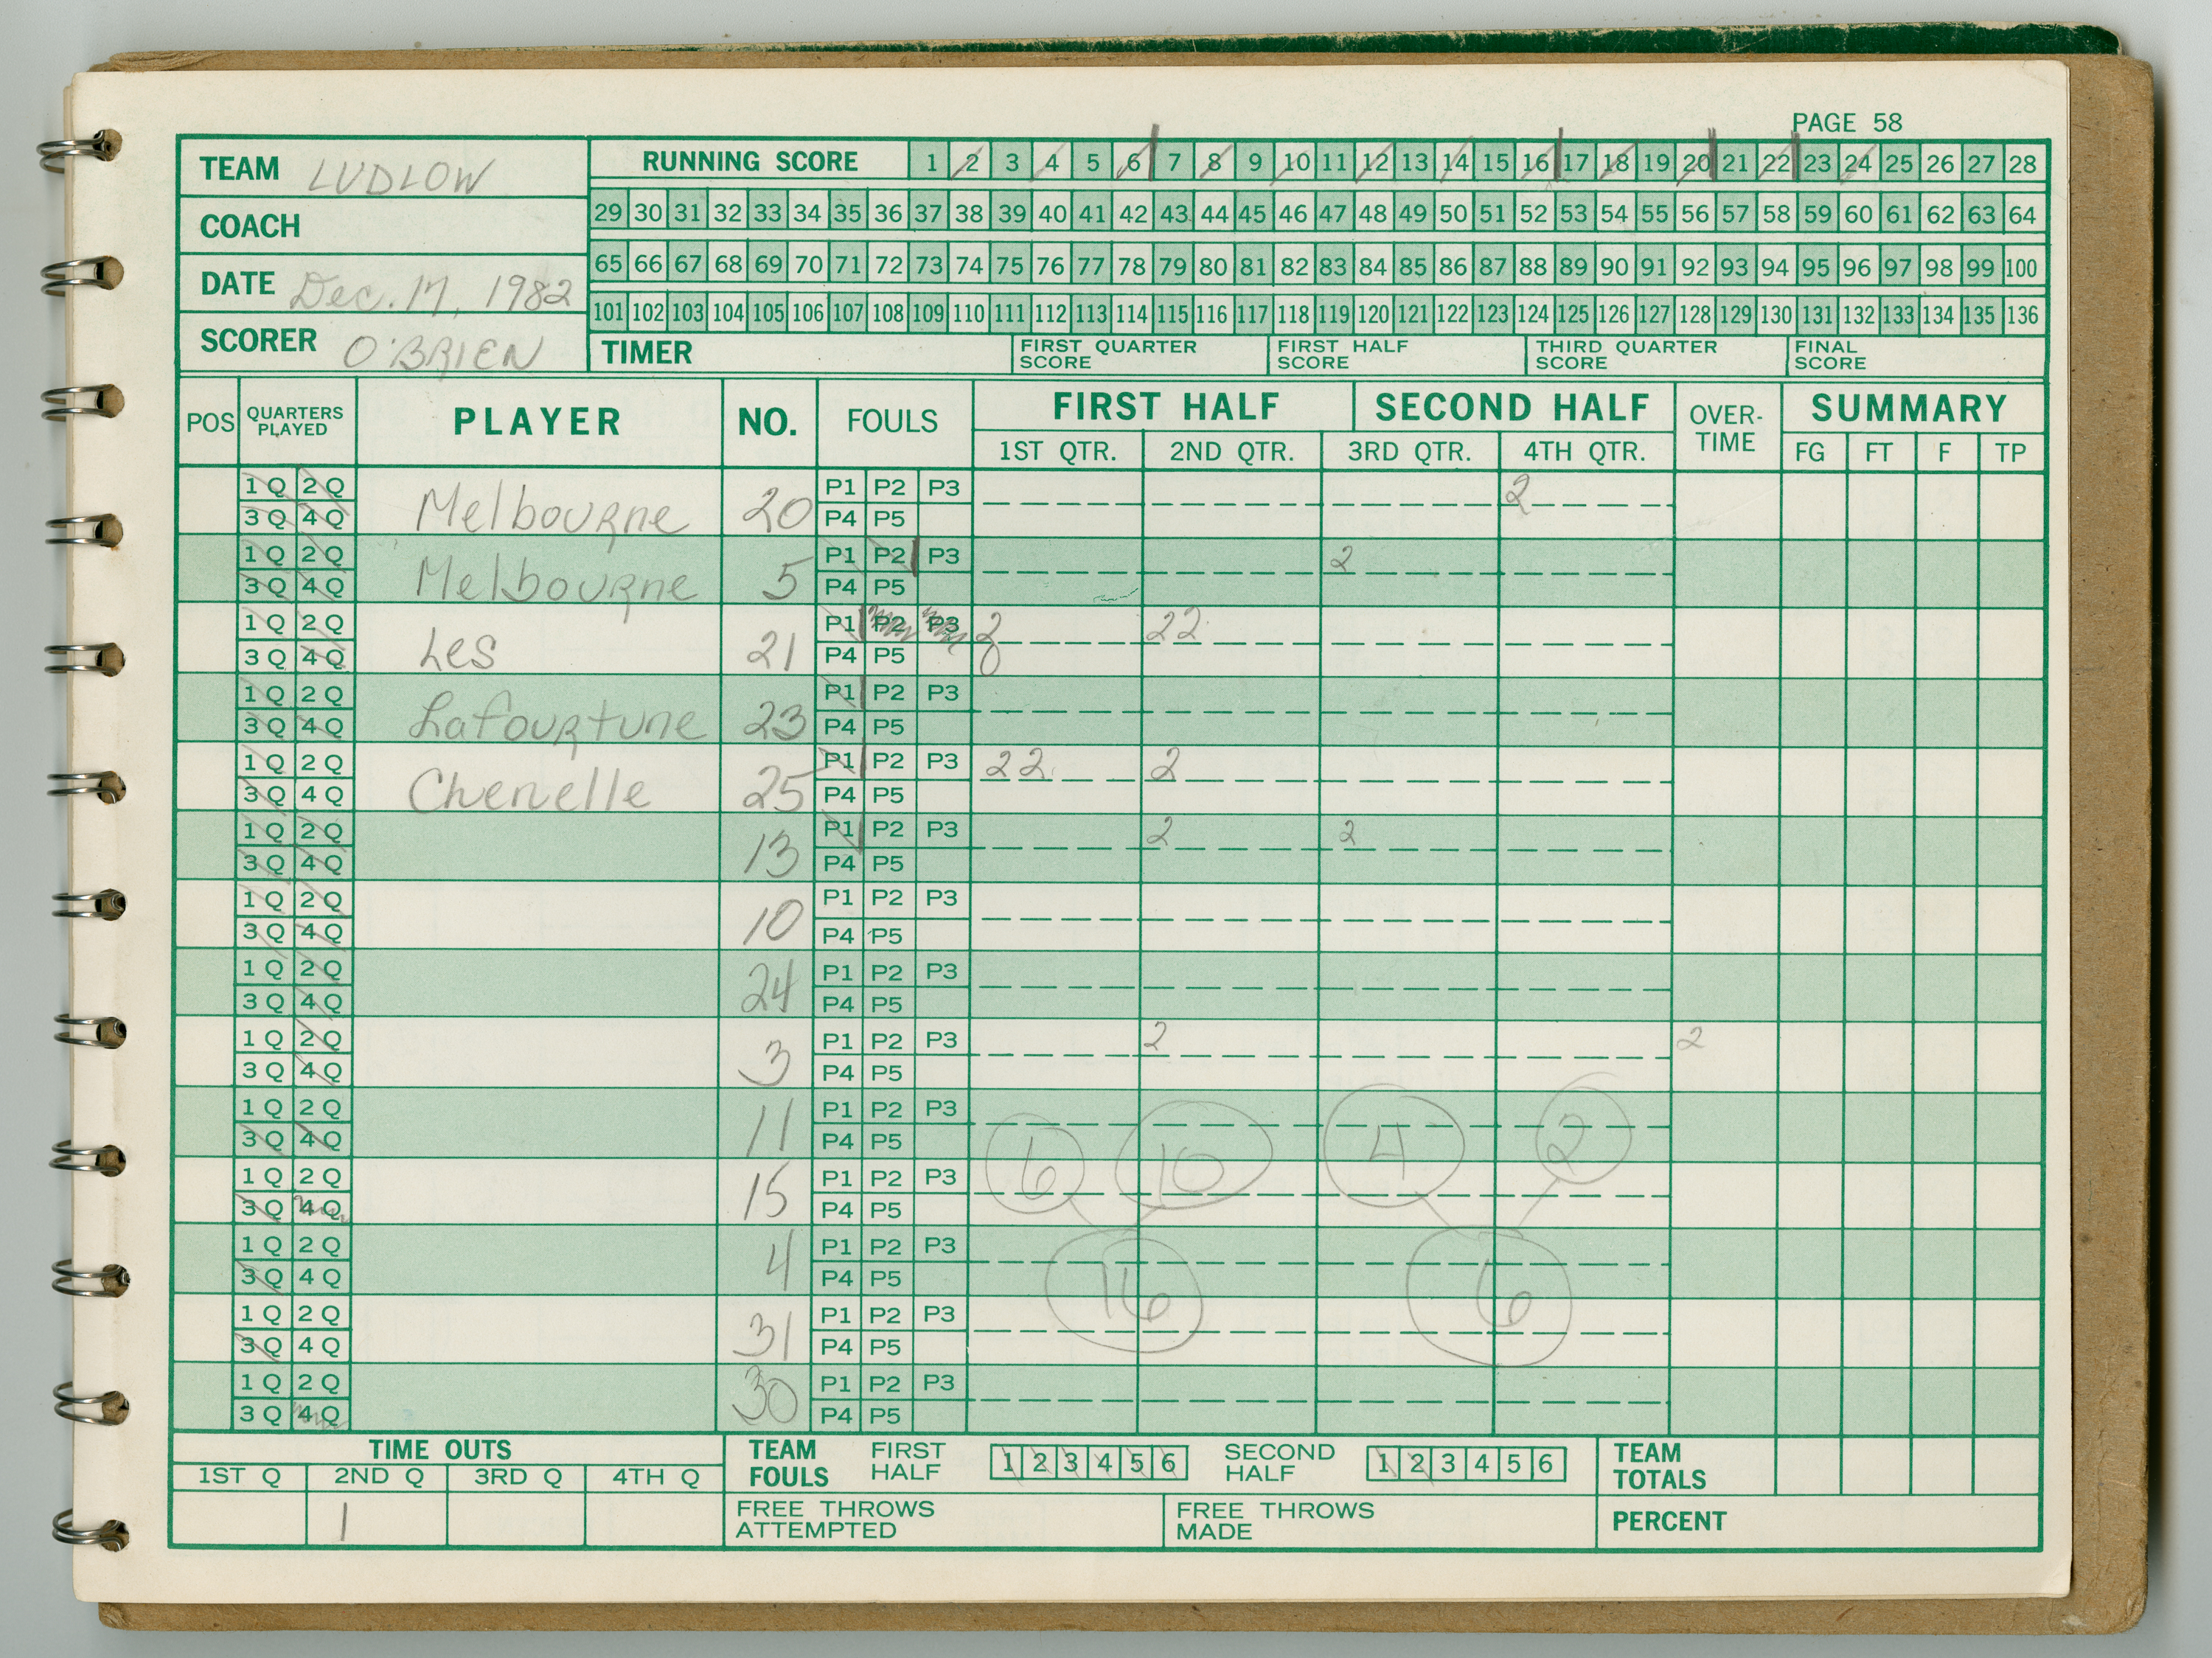 PAGE 58
TEAM LUDLOW
RUNNING SCORE 1 2 3 4 5 6 7 8 9 10 11 12 13 14 15 16 17 18 19 20 21 22 23 24 25 26 27 28
COACH
29 30 31 32 33 34 35 36 37 38 39 40 41 42 43 44 45 46 47 48 49 50 51 52 53 54 55 56 57 58 59 60 61 62 63 64
DATE Dec. 17, 1982
65 66 67 68 69 70 71 72 73 74 75 76 77 78 79 80 81 82 83 84 85 86 87 88 89 90 91 92 93 94 95 96 97 98 99 100
101 102 103 104 105 106 107 108 109 110 111 112 113 114 115 116 117 118 119 120 121 122 123 124 125 126 127 128 129 130 131 132 133 134 135 136
SCORER O'BRIEN
TIMER FIRST QUARTER SCORE FIRST HALF SCORE THIRD QUARTER SCORE FINAL SCORE
POS QUARTERS PLAYED PLAYER NO. FOULS FIRST HALF SECOND HALF OVER-TIME SUMMARY
1ST QTR. 2ND QTR. 3RD QTR. 4TH QTR. FG FT F TP
1 Q 2 Q P1 P2 P3 2
3 Q 4 Q Melbourne 20 P4 P5
1 Q 2 Q P1 P2 P3 2
3 Q 4 Q Melbourne 5 P4 P5
1 Q 2 Q P1 P2 P3 2 22
3 Q 4 Q Les 21 P4 P5 0
1 Q 2 Q P1 P2 P3
3 Q 4 Q Lafourtune 23 P4 P5
1 Q 2 Q P1 P2 P3 22 2
3 Q 4 Q Chenelle 25 P4 P5
1 Q 2 Q P1 P2 P3 2 2
3 Q 4 Q 13 P4 P5
1 Q 2 Q P1 P2 P3
3 Q 4 Q 10 P4 P5
1 Q 2 Q P1 P2 P3
3 Q 4 Q 24 P4 P5
1 Q 2 Q P1 P2 P3 2 2
3 Q 4 Q 3 P4 P5
1 Q 2 Q P1 P2 P3
3 Q 4 Q 11 P4 P5 6 10 4 2
1 Q 2 Q P1 P2 P3
3 Q 4 Q 15 P4 P5
1 Q 2 Q P1 P2 P3
3 Q 4 Q 4 P4 P5 16 6
1 Q 2 Q P1 P2 P3
3 Q 4 Q 31 P4 P5
1 Q 2 Q P1 P2 P3
3 Q 4 Q 30 P4 P5
TIME OUTS TEAM FOULS FIRST HALF 1 2 3 4 5 6 SECOND HALF 1 2 3 4 5 6 TEAM TOTALS
1ST Q 2ND Q 3RD Q 4TH Q
1 FREE THROWS ATTEMPTED FREE THROWS MADE PERCENT